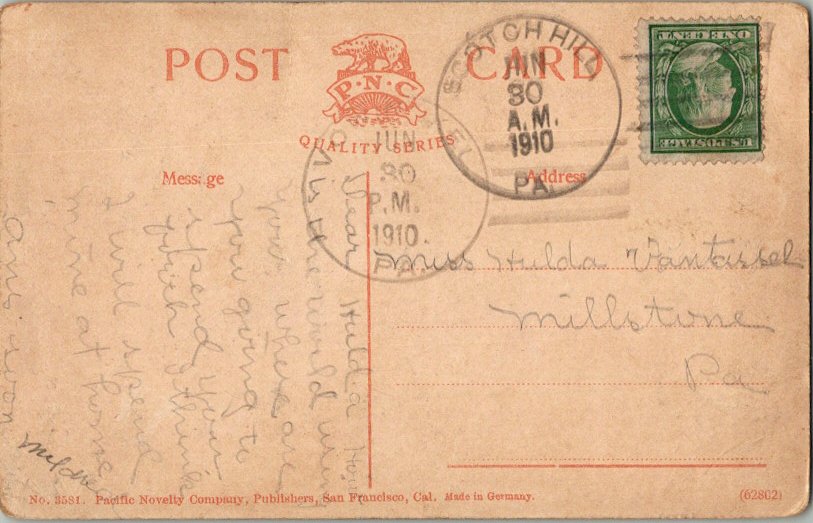 POST CARD
P·N·C
QUALITY SERIES
SCOTCH HILL
JUN
30
A.M.
1910
PA.
JUN
30
P.M.
1910.
PA.
ONE CENT
U.S. POSTAGE
Message
Address
Dear Hulda How
is the world
you where are
you going to
spend your
I will spend
mine at home
Ans soon
Mildred
Miss Hulda Vantassel
Millstone
Pa
No. 3581. Pacific Novelty Company, Publishers, San Francisco, Cal. Made in Germany.
(62802)